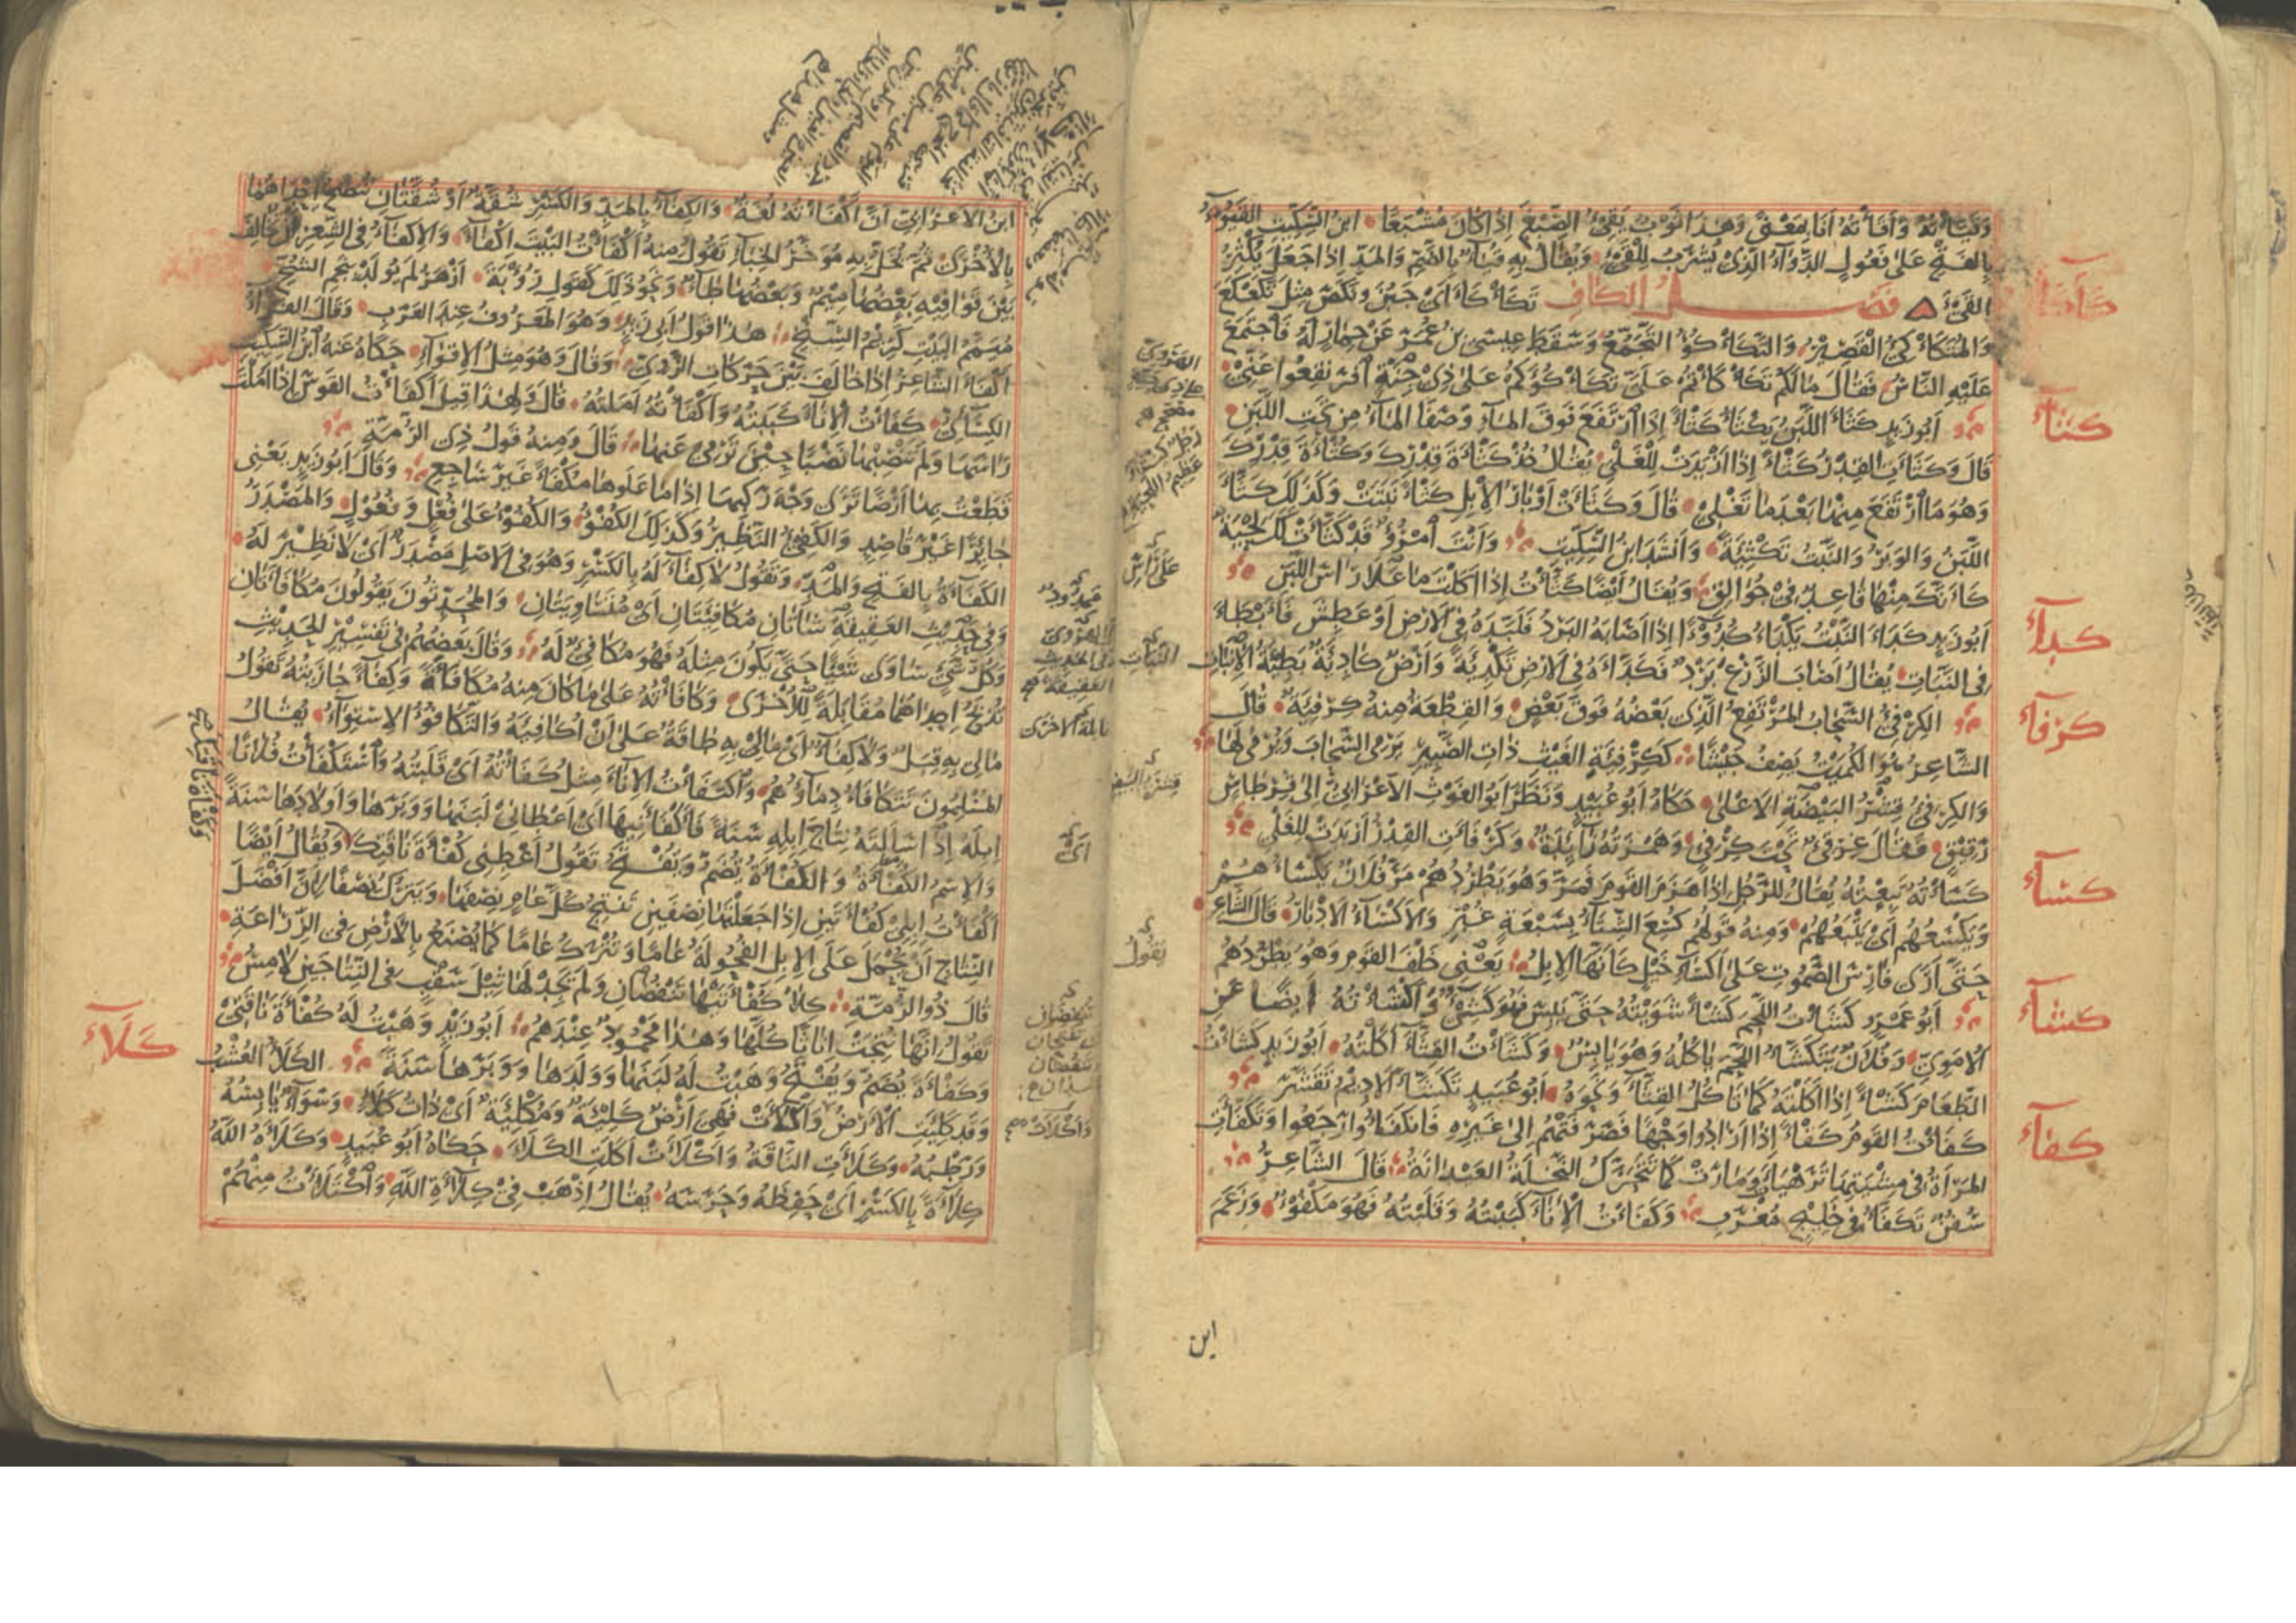 وَقَيَّأْتُهُ وَأَقَأْتُهُ أَنَا بِمَعْنًى وَهٰذَا ثَوْبٌ يَقِيءُ الصِّبْغَ إِذَا كَانَ مُشْبَعًا ابْنُ السِّكِّيتِ القَيُوءُ
بِالفَتْحِ عَلٰى فَعُولٍ الدَّوَآءُ الَّذِي يُشْرَبُ لِلْقَيْءِ وَيُقَالُ بِهِ قُيَآءٌ بِالضَّمِّ وَالمَدِّ إِذَا جَعَلَ يُكْثِرُ
القَيْءَ فصل الكاف تَكَأْكَأَ أَيْ جَبُنَ وَنَكَصَ مِثْلُ تَكَعْكَعَ
كأكأ
وَالمُتَكَأْكِئُ القَصِيرُ وَالتَّكَأْكُؤُ التَّجَمُّعُ وَسَقَطَ عِيسَى بْنُ عُمَرَ عَنْ حِمَارٍ لَهُ فَاجْتَمَعَ
عَلَيْهِ النَّاسُ فَقَالَ مَا لَكُمْ تَكَأْكَأْتُمْ عَلَيَّ تَكَأْكُؤَكُمْ عَلٰى ذِي جِنَّةٍ افْرَنْقِعُوا عَنِّي
كثأ
أَبُو زَيْدٍ كَثَأَ اللَّبَنُ يَكْثَأُ كَثْأً إِذَا ارْتَفَعَ فَوْقَ المَآءِ وَصَفَا المَآءُ مِنْ تَحْتِ اللَّبَنِ
قَالَ وَكَثَأَتِ القِدْرُ كَثْأً إِذَا أَزْبَدَتْ لِلْغَلْيِ يُقَالُ خُذْ كَثْأَةَ قِدْرِكَ وَكُثْأَةَ قِدْرِكَ
وَهُوَ مَا ارْتَفَعَ مِنْهَا بَعْدَمَا تَغْلِي قَالَ وَكَثَأَتْ أَوْبَارُ الإِبِلِ كَثْأً نَبَتَتْ وَكَذٰلِكَ كَثَّأَ
اللَّبَنُ وَالوَبَرُ وَالنَّبْتُ تَكْثِئَةً وَأَنْشَدَ ابْنُ السِّكِّيتِ وَأَنْتَ امْرُؤٌ قَدْ كَثَّأَتْ لَكَ لِحْيَةٌ
كَأَنَّكَ مِنْهَا قَاعِدٌ فِي جُوَالِقِ وَيُقَالُ أَيْضًا كَثَأْتُ إِذَا أَكَلْتَ مَا عَلَا رَأْسَ اللَّبَنِ
كدأ
أَبُو زَيْدٍ كَدَأَ النَّبْتُ يَكْدَأُ كُدُوءًا إِذَا أَصَابَهُ البَرْدُ فَلَبَّدَهُ فِي الأَرْضِ أَوْ عَطِشَ فَأَبْطَأَ
فِي النَّبَاتِ يُقَالُ أَصَابَ الزَّرْعَ بَرْدٌ فَكَدَّأَهُ فِي الأَرْضِ تَكْدِئَةً وَأَرْضٌ كَادِئَةٌ بَطِيئَةُ الإِنْبَاتِ
كرفأ
الكِرْفِئُ السَّحَابُ المُرْتَفِعُ الَّذِي بَعْضُهُ فَوْقَ بَعْضٍ وَالقِطْعَةُ مِنْهُ كِرْفِئَةٌ قَالَ
الشَّاعِرُ يَصِفُ جَيْشًا كَكِرْفِئَةِ الغَيْثِ ذَاتِ الصَّبِيرِ تَرْمِي السَّحَابَ وَيُرْمٰى لَهَا
وَالكِرْفِئُ قِشْرُ البَيْضَةِ الأَعْلٰى حَكَاهُ أَبُو عُبَيْدٍ وَنَظَرَ أَبُو الغَوْثِ الأَعْرَابِيُّ إِلٰى قِرْطَاسٍ
رَقِيقٍ فَقَالَ غِرْقِئٌ تَحْتَ كِرْفِئٍ وَهَمْزَتُهُ زَائِدَةٌ وَكَرْفَأَتِ القِدْرُ أَزْبَدَتْ لِلْغَلْيِ
كسأ
كَسَأْتُهُ تَبِعْتُهُ يُقَالُ لِلرَّجُلِ إِذَا هَزَمَ القَوْمَ فَمَرَّ وَهُوَ يَطْرُدُهُمْ مَرَّ فُلَانٌ يَكْسَأُهُمْ
وَيَكْسَعُهُمْ أَيْ يَتْبَعُهُمْ وَمِنْهُ قَوْلُهُمْ كُسِعَ الشِّتَآءُ بِسَبْعَةٍ غُبْرٍ وَالأَكْسَآءُ الأَدْبَارُ قَالَ الشَّاعِرُ
حَتَّى أَرٰى فَارِسَ الصَّمُوتِ عَلٰى أَكْسَآءِ خَيْلٍ كَأَنَّهَا الإِبِلُ يَعْنِي خَلْفَ القَوْمِ وَهُوَ يَطْرُدُهُمْ
كشأ
أَبُو عَمْرٍو كَشَأْتُ اللَّحْمَ كَشْأً شَوَيْتُهُ حَتَّى يَبِسَ فَهُوَ كَشِيءٌ وَأَكْشَأْتُهُ أَيْضًا عَنِ
الأُمَوِيِّ وَفُلَانٌ يَتَكَشَّأُ اللَّحْمَ يَأْكُلُهُ وَهُوَ يَابِسٌ وَكَشَأْتُ القِثَّآءَ أَكَلْتُهُ أَبُو زَيْدٍ كَشَأْتُ
الطَّعَامَ كَشْأً إِذَا أَكَلْتَهُ كَمَا تَأْكُلُ القِثَّآءَ وَنَحْوَهُ أَبُو عُبَيْدٍ تَكَشَّأَ الأَدِيمُ تَقَشَّرَ
كفأ
كَفَأْتُ القَوْمَ كَفْأً إِذَا أَرَادُوا وَجْهًا فَصَرَفْتَهُمْ إِلٰى غَيْرِهِ فَانْكَفَأُوا وَرَجَعُوا وَتَكَفَّأَتِ
المَرْأَةُ فِي مِشْيَتِهَا تَرَهْيَأَتْ وَمَادَتْ كَمَا تَتَحَرَّكُ النَّخْلَةُ العَيْدَانَةُ قَالَ الشَّاعِرُ
سُفُنٌ تَكَفَّأُ فِي خَلِيجٍ مُغْرَبِ وَكَفَأْتُ الإِنَآءَ كَبَبْتُهُ وَقَلَبْتُهُ فَهُوَ مَكْفُوءٌ وَزَعَمَ
ابن
ابْنُ الأَعْرَابِيِّ أَنَّ أَكْفَأْتُهُ لُغَةٌ وَالكِفَآءُ بِالمَدِّ وَالكَسْرِ شُقَّةٌ أَوْ شُقَّتَانِ تُنْصَحُ إِحْدَاهُمَا
بِالأُخْرٰى ثُمَّ يُخَلُّ بِهِ مُؤَخَّرُ الخِبَآءِ تَقُولُ مِنْهُ أَكْفَأْتُ البَيْتَ إِكْفَآءً وَالإِكْفَآءُ فِي الشِّعْرِ أَنْ يُخَالِفَ
بَيْنَ قَوَافِيهِ بَعْضُهَا مِيمٌ وَبَعْضُهَا طَآءٌ وَنَحْوُ ذٰلِكَ كَقَوْلِ رُؤْبَةَ أَزْهَرُ لَمْ يُولَدْ بِنَجْمِ الشُّحِّ
مُيَمَّمُ البَيْتِ كَرِيمُ السِّنْخِ هٰذَا قَوْلُ أَبِي زَيْدٍ وَهُوَ المَعْرُوفُ عِنْدَ العَرَبِ وَقَالَ الفَرَّآءُ
أَكْفَأَ الشَّاعِرُ إِذَا خَالَفَ بَيْنَ حَرَكَاتِ الرَّوِيِّ وَقَالَ وَهُوَ مِثْلُ الإِقْوَآءِ حَكَاهُ عَنْهُ ابْنُ السِّكِّيتِ
الكِسَائِيُّ كَفَأْتُ الإِنَآءَ كَبَبْتُهُ وَأَكْفَأْتُهُ أَمَلْتُهُ قَالَ وَلِهٰذَا قِيلَ أَكْفَأْتُ القَوْسَ إِذَا أَمَلْتَ
رَأْسَهَا وَلَمْ تَنْصِبْهَا نَصْبًا حِينَ تَرْمِي عَنْهَا قَالَ وَمِنْهُ قَوْلُ ذِي الرُّمَّةِ
قَطَعْتُ بِهَا أَرْضًا تَرٰى وَجْهَ رَكْبِهَا إِذَا مَا عَلَوْهَا مُكْفَأً غَيْرَ سَاجِعِ وَقَالَ أَبُو زَيْدٍ يَعْنِي
جَائِرًا غَيْرَ قَاصِدٍ وَالكَفِيءُ النَّظِيرُ وَكَذٰلِكَ الكُفْءُ وَالكُفُوءُ عَلٰى فُعْلٍ وَفُعُولٍ وَالمَصْدَرُ
الكَفَآءَةُ بِالفَتْحِ وَالمَدِّ وَتَقُولُ لَا كِفَآءَ لَهُ بِالكَسْرِ وَهُوَ فِي الأَصْلِ مَصْدَرٌ أَيْ لَا نَظِيرَ لَهُ
وَفِي حَدِيثِ العَقِيقَةِ شَاتَانِ مُكَافِئَتَانِ أَيْ مُتَسَاوِيَتَانِ وَالمُحَدِّثُونَ يَقُولُونَ مُكَافَأَتَانِ
وَكُلُّ شَيْءٍ سَاوٰى شَيْئًا حَتَّى يَكُونَ مِثْلَهُ فَهُوَ مُكَافِئٌ لَهُ وَقَالَ بَعْضُهُمْ فِي تَفْسِيرِ الحَدِيثِ
تُذْبَحُ إِحْدَاهُمَا مُقَابِلَةً لِلْأُخْرٰى وَكَافَأْتُهُ عَلٰى مَا كَانَ مِنْهُ مُكَافَأَةً وَكِفَآءً جَازَيْتُهُ تَقُولُ
مَا لِي بِهِ قِبَلٌ وَلَا كِفَآءٌ أَيْ مَا لِي بِهِ طَاقَةٌ عَلٰى أَنْ أُكَافِئَهُ وَالتَّكَافُؤُ الاِسْتِوَآءُ يُقَالُ
المُسْلِمُونَ تَتَكَافَأُ دِمَاؤُهُمْ وَاكْتَفَأْتُ الإِنَآءَ مِثْلُ كَفَأْتُهُ أَيْ قَلَبْتُهُ وَاسْتَكْفَأْتُ فُلَانًا
إِبِلَهُ إِذَا سَأَلْتَهُ نِتَاجَ إِبِلِهِ سَنَةً فَأَكْفَأَنِيهَا أَيْ أَعْطَانِي لَبَنَهَا وَوَبَرَهَا وَأَوْلَادَهَا سَنَةً
وَالاِسْمُ الكُفْأَةُ وَالكَفْأَةُ يُضَمُّ وَيُفْتَحُ تَقُولُ أَعْطِنِي كُفْأَةَ نَاقَتِكَ وَيُقَالُ أَيْضًا
أَكْفَأْتُ إِبِلِي كُفْأَتَيْنِ إِذَا جَعَلْتَهَا نِصْفَيْنِ تُنْتِجُ كُلَّ عَامٍ نِصْفَهَا وَيُتْرَكُ نِصْفًا لِأَنَّ أَفْضَلَ
النِّتَاجِ أَنْ يُحْمَلَ عَلَى الإِبِلِ الفُحُولَةُ عَامًا وَتُتْرَكُ عَامًا كَمَا يُصْنَعُ بِالأَرْضِ فِي الزِّرَاعَةِ
قَالَ ذُو الرُّمَّةِ كِلَا كُفْأَتَيْهَا تُنْفِضَانِ وَلَمْ تَجِدْ لَهَا ثِيلَ سَقْبٍ فِي النِّتَاجَيْنِ لَامِسُ
تَقُولُ إِنَّهَا نُتِجَتْ إِنَاثًا كُلَّهَا وَهٰذَا مَحْمُولٌ عِنْدَهُمْ أَبُو زَيْدٍ وَهَبْتُ لَهُ كُفْأَةَ نَاقَتِي
وَكَفْأَةَ يُضَمُّ وَيُفْتَحُ وَهَبْتُ لَهُ لَبَنَهَا وَوَلَدَهَا وَوَبَرَهَا سَنَةً الكَلَأُ العُشْبُ
كلأ
وَقَدْ كَلِئَتِ الأَرْضُ وَأَكْلَأَتْ فَهِيَ أَرْضٌ كَلِئَةٌ وَمُكْلِئَةٌ أَيْ ذَاتُ كَلَأٍ وَسَوَآءٌ يَابِسُهُ
وَرَطْبُهُ وَكَلَأَتِ النَّاقَةُ وَأَكْلَأَتْ أَكَلَتِ الكَلَأَ حَكَاهُ أَبُو عُبَيْدٍ وَكَلَأَهُ اللّٰهُ
كِلَآءَةً بِالكَسْرِ أَيْ حَفِظَهُ وَحَرَسَهُ يُقَالُ اذْهَبْ فِي كِلَآءَةِ اللّٰهِ وَاكْتَلَأْتُ مِنْهُمْ